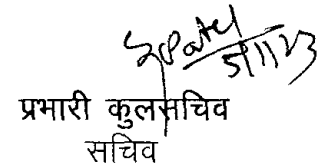 5/1/23
प्रभारी कुलसचिव
सचिव